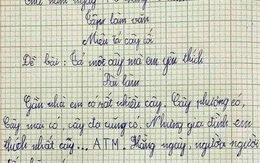 Tập làm văn
Miêu tả cây cối
Đề bài: Tả một cây mà em yêu thích
Bài làm
Gần nhà em có rất nhiều cây. Cây phượng có,
Cây mai có, cây đa cũng có. Nhưng gia đình em
thích nhất cây... ATM. Hằng ngày, người người